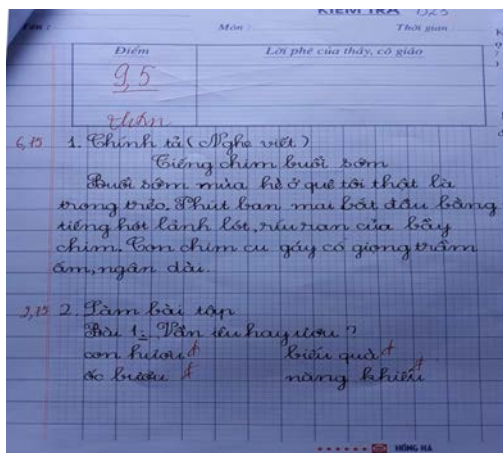 KIỂM TRA
Môn :
Thời gian
Điểm
Lời phê của thầy, cô giáo
9,5
1. Chính tả (Nghe viết)
Tiếng chim buổi sớm
Buổi sớm mùa hè ở quê tôi thật là
trong trẻo. Phút ban mai bắt đầu bằng
tiếng hót lảnh lót, ríu ran của bầy
chim. Con chim cu gáy có giọng trầm
ấm, ngân dài.
2. Làm bài tập
Bài 1: Vần iêu hay ươu ?
con hươu
biếu quà
ốc bươu
năng khiếu
HỒNG HÀ